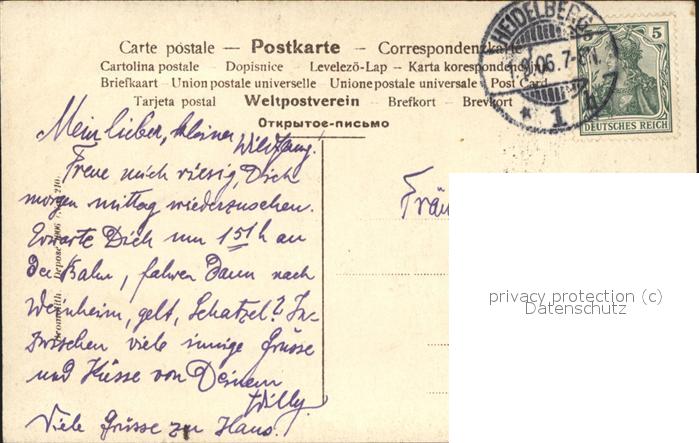 Carte postale — Postkarte — Correspondenzkarte
Cartolina postale – Dopisnice – Levelező-Lap – Karta korespondencyjna
Briefkaart – Union postale universelle – Unione postale universale – Post Card
Tarjeta postal – Weltpostverein – Brefkort – Brevkort
Открытое-письмо
HEIDELBERG
06.7-
* 1
5
DEUTSCHES REICH
Mein lieber, kleiner Wildfang!
Freue mich riesig, Dich
morgen mittag wiederzusehen.
Erwarte Dich um 1 51 h an
der Bahn, fahren dann nach
Weinheim, gelt, Schatzel? In-
zwischen viele innige Grüsse
und Küsse von Deinem
Willy.
Viele Grüsse zu Haus!
Fräu
privacy protection (c)
Datenschutz